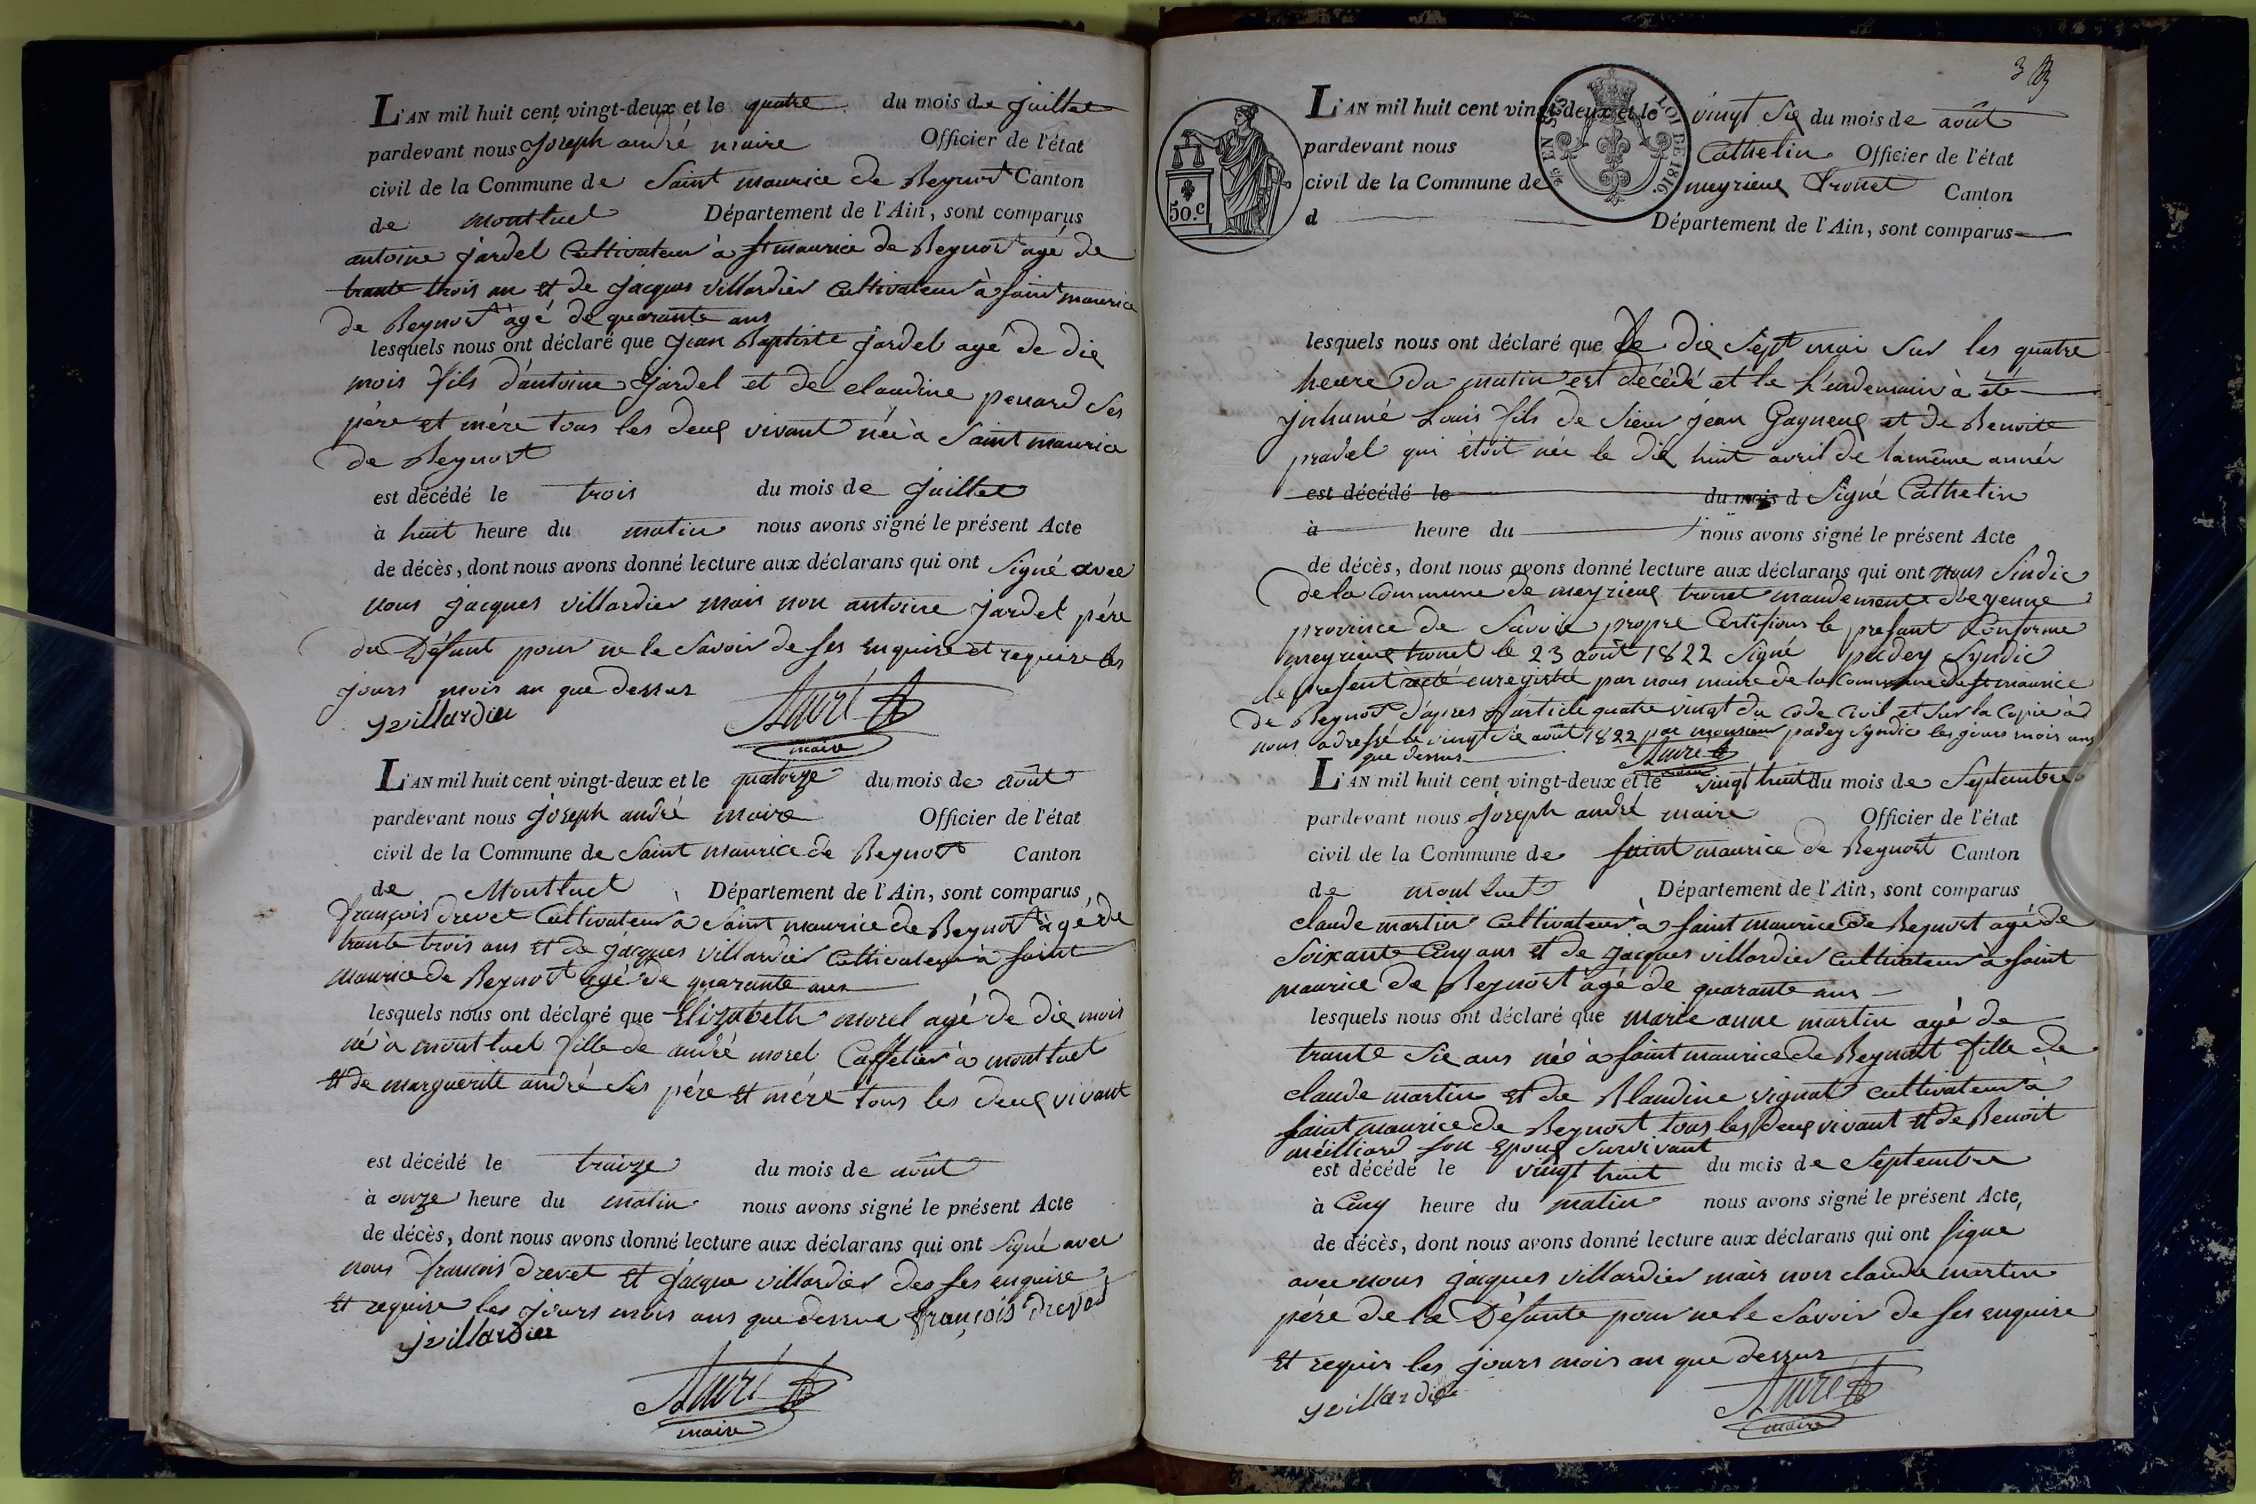 L'AN mil huit cent vingt-deux et le quatre du mois de juillet
pardevant nous joseph andré maire Officier de l'état
civil de la Commune de Saint maurice de Beynost Canton
de montluel Département de l'Ain, sont comparus
antoine jardel Cultivateur à st maurice de Beynost agé de
trante trois an et de jacques villardier Cultivateur à saint maurice
de Beynost àgé de quarante ans
lesquels nous ont déclaré que jean Baptiste jardel agé de dix
mois fils d'antoine jardel et de claudine penard Ses
père et mére tous les deux vivant née à Saint maurice
de Beynost
est décédé le trois du mois de juillet
à huit heure du matin nous avons signé le présent Acte
de décès, dont nous avons donné lecture aux déclarans qui ont Signé avec
nous jacques villardier mais non antoine jardel pére
du Défunt pour ne le Savoir de ses enquire et require les
jours mois an que dessus
jvillardier André
maire
L'AN mil huit cent vingt-deux et le quatorze du mois de août
pardevant nous joseph andré maire Officier de l'état
civil de la Commune de Saint maurice de Beynost Canton
de Montluel Département de l'Ain, sont comparus
françois drevet Cultivateur à Saint maurice de Beynost àgé de
trante trois ans et de jacques villardier Cultivateur à saint
maurice de Beynost agé de quarante ans
lesquels nous ont déclaré que Elizabeth morel agé de dix mois
né à montluel fille de andré morel Caffetier à montluel
et de marguerite andré Ses pére et mére tous les deux vivant
est décédé le traize du mois de août
à onze heure du matin nous avons signé le présent Acte
de décès, dont nous avons donné lecture aux déclarans qui ont Signé avec
nous francois drevet et jacque villardier de ses enquire
et require les jours mois ans que dessus françois drevet
jvillardier
André
maire
3
50.C
EN SUS
LOI DE 1816.
L'AN mil huit cent vingt-deux et le vingt Six du mois de août
pardevant nous Cathelin Officier de l'état
civil de la Commune de meyrieux trouet Canton
d Département de l'Ain, sont comparus
lesquels nous ont déclaré que Le dix Sept mai Sur les quatre
heure du matin est décédé et le l'endemain à été
jnhumé Louis fils de Sieur jean Gagneux et de Benoite
pradel qui étoit née le dix huit avril de la même année
est décédé le du mois d Signé Cathelin
à heure du nous avons signé le présent Acte
de décès, dont nous avons donné lecture aux déclarans qui ont nous Sindic
de la Commune de meyrieux trouet mandement d'eyenne
province de Savoie propre Certifions le presant Conforme
meyrieux trouet le 23 août 1822 Signé padey Syndic
le present acte enregistré par nous maire de la Commune de st maurice
de Beynost d'apres l'article quatre vingt du Code Civil et Sur la Copie a
nous adressé le vingt Six août 1822 par monsieur padey Syndic les jours mois ans
que dessus André
L'AN mil huit cent vingt-deux et le vingt huit du mois de Septembre
pardevant nous joseph andré maire Officier de l'état
civil de la Commune de saint maurice de Beynost Canton
de montluel Département de l'Ain, sont comparus
claude martin Cultivateur à saint maurice de Beynost agé de
Soixante Cinq ans et de jacques villardier Cultivateur à saint
maurice de Beynost àgé de quarante ans
lesquels nous ont déclaré que marie anne martin agé de
trante Six ans née à saint maurice de Beynost fille de
claude martin et de Blandine vignat cultivateur à
saint maurice de Beynost tous les deux vivant et de Benoit
meilliard son Epoux Survivant
est décédé le vingt huit du mois de Septembre
à Cinq heure du matin nous avons signé le présent Acte,
de décès, dont nous avons donné lecture aux déclarans qui ont signe
avec nous jacques villardier mais non claude martin
pére de la Défunte pour ne le Savoir de ses enquire
et requir les jours mois an que dessus
jvillardier André
maire